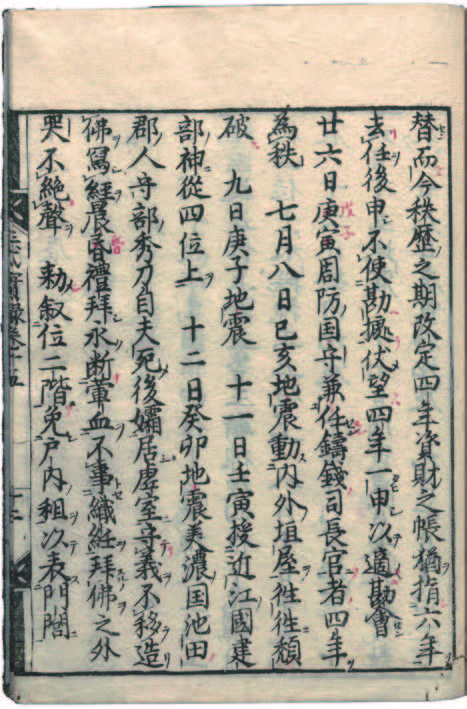 替而今秩歴之期改定四年資財之帳猶指六年
去任後申不便勘據伏望四年一申以適勘會
廿六日庚寅周防国守兼任鑄錢司長官者四年
為秩　七月八日已亥地震動內外垣屋往往頹
破　九日庚子地震　十一日壬寅授近江國建
部神從四位上　十二日癸卯地震美濃国池田
郡人守部秀刀自夫死後孀居虚室守義不移造
佛寫經晨昏禮拜永断葷血不事織紝拜佛之外
哭不絶聲　勅叙位二階免戸內租以表門閭
戊子
代實録卷十五